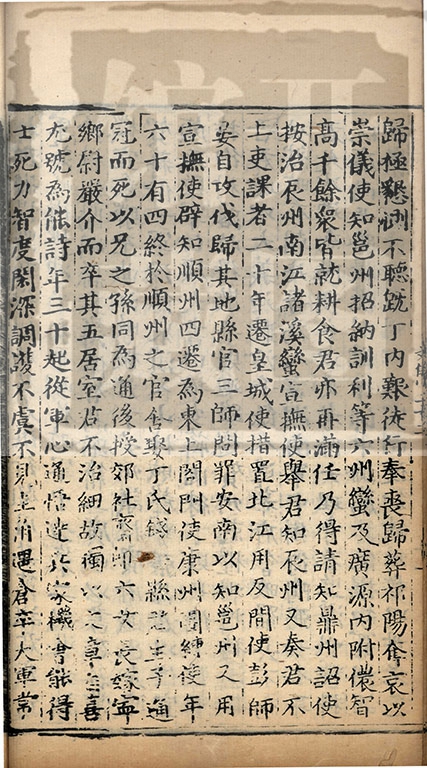 歸極懇訓不聽既丁內艱徒行奉喪歸葬祁陽奪哀以
崇儀使知邕州招納訓利等六州蠻及廣源內附儂智
高千餘衆皆就耕食君亦再滿任乃得請知鼎州詔使
按治辰州南江諸溪蠻宣撫使舉君知辰州又奏君不
上吏課者二十年遷皇城使措置北江用反間使彭師
晏自攻伐歸其地縣官三師問罪安南以知邕州又用
宣撫使辟知順州四遷為東上閤門使康州團練使年
六十有四終於順州之官舍娶丁氏錢 縣君生子通
冠而死以兄之孫同為通後授郊社齋郎六女長嫁寧
鄉尉嚴介而卒其五居室君不治細故獨以文章自喜
尤號為能詩年三十起從軍心通悟達兵家機書能得
士死力智度閎深調護不虞不見圭角遇倉卒大軍常